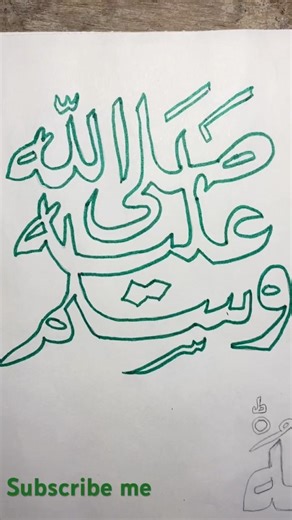 صلى الله
عليه
وسلم
Subscribe me